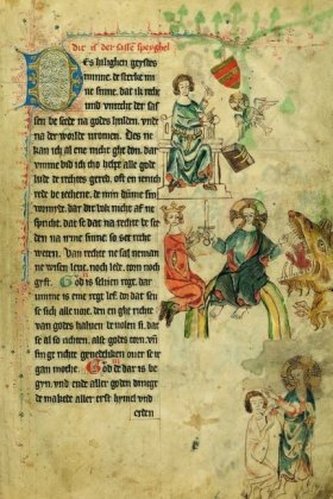 Dit is der sassen speyghel
Des hilighen geystes
minne. de sterke mi
ne sinne. dat ik recht
unde unrecht der sas
sen be scede na godes hulden. unde
na der werlde vromen. Des ne
kan ich al ene nicht ghe don. dar
umme bid ich tho helpe alle gode
lude de rechtes gered. oft en iench
rede be jeghene. de min dumme sin
vormide. dar dit bok nicht af ne
spricht. dat se dat na rechte be sce
den na irme sinne. so set rechte
weten. Van rechte ne sal neman
ne wisen leve. noch lede. torn noch
gyft. God is selven regt. dar
umme is eme regt lef. dor dat
se sich alle vore. den en ghe richte
van godes halven be volen si. dat
se al so richten. alse godes torn. un
sin ge richte over se ir
gan moghe. God de dar is be
gyn. unde ende aller goden dinege
de makede aller erst hymel unde
erden